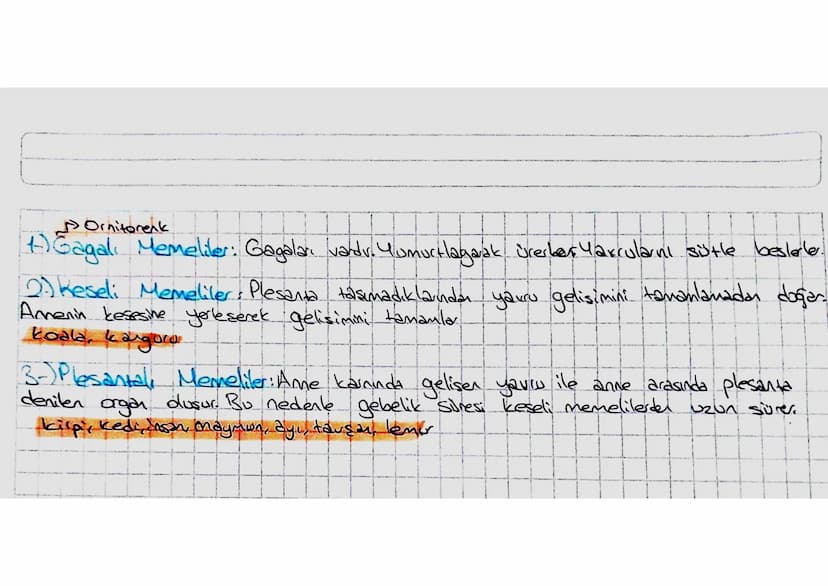 → Ornitorenk
1-) Gagalı Memeliler: Gagaları vardır. Yumurtlayarak ürerler. Yavrularını sütle beslerler.
2-) Keseli Memeliler: Plesanta taşımadıklarından yavru gelişimini tamamlamadan doğar.
Annenin kesesine yerleşerek gelişimini tamamlar
Koala, kanguru
3-) Plesentalı Memeliler: Anne karnında gelişen yavru ile anne arasında plesanta
denilen organ oluşur. Bu nedenle gebelik süresi keseli memelilerden uzun sürer.
kirpi, kedi, insan, maymun, ayı, tavşan, lemur